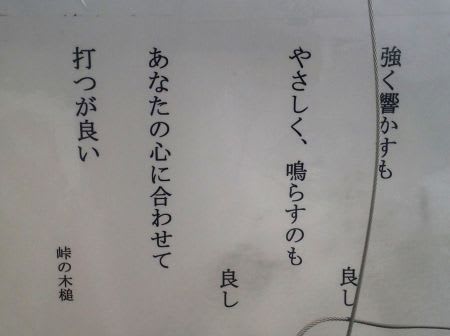 強く響かすも
良し
やさしく、鳴らすのも
良し
あなたの心に合わせて
打つが良い
峠の木槌